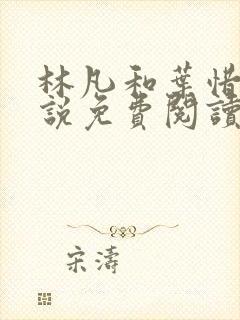 林凡和葉惜
說免費閱讀
宋濤